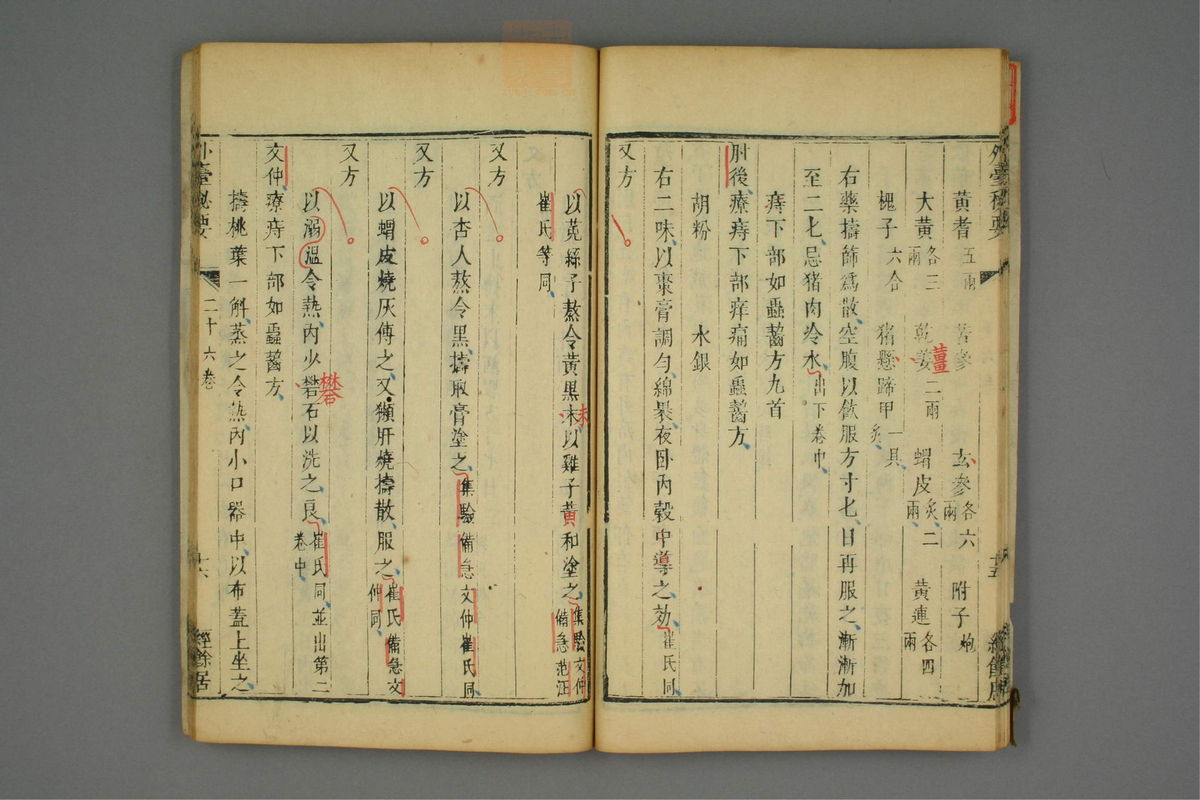 外臺秘要
黃耆五兩 苦參 玄參各六兩 附子炮
大黃各三兩 乾姜二兩 蝟皮炙二兩 黃連各四兩
薑
槐子六合 猪懸蹄甲一具炙
右藥擣篩爲散空腹以飲服方寸七日再服之漸漸加
至二七忌猪肉冷水出下卷中
痔下部如蟲齧方九首
肘後療痔下部痒痛如蟲齧方
胡粉 水銀
右二味以棗膏調勻綿裹夜卧內穀中導之効崔氏同
又方
以菟絲子熬令黃黑末以雞子黃和塗之集驗文仲備急范汪
崔氏等同
又方
以杏人熬令黑擣取膏塗之集驗備急文仲崔氏同
又方
以蝟皮燒灰傅之又獺肝燒擣散服之崔氏備急文仲同
又方
以溺溫令熱內少礬石以洗之良崔氏同並出第二卷中
礬
文仲療痔下部如蟲齧方
擣桃葉一斛蒸之令熱內小口器中以布蓋上坐之
外臺秘要 二十六卷 十六 經餘居